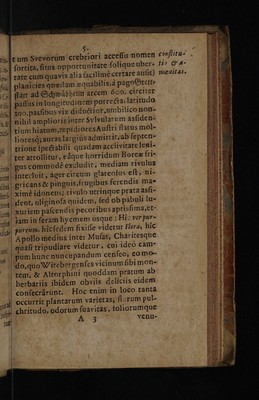 5.
tum Svevorum crebriori accessu nomen
sortita, situs opportunitate solisque uber-
tate cum quavis alia facilimè certare ausit)
planicies quædam æquabilis, à pago
statt ad arcem 600. circiter
passus in longitudinem porrecta: latitudo
300. passibus vix diducitur, umbilico non-
nihil ampliori: inter Sylvularum assiden-
tium hiatum, tepidiores Austri flatus mol-
lioresq; auras largiùs admittit, ab septen-
trione spectabili quadam acclivitate leni-
ter attollitur, eâque horridum Boreæ fri-
gus commodè excludit. mediam rivulus
interluit, ager circum glareosus est, ni-
gricans & pinguis, frugibus ferendis ma-
ximè idoneus; rivulo utrinque prata assi-
dent, uliginosa quidem, sed ob pabuli lu-
xuriem pascendis pecoribus aptissima, et-
iam in seram hyemem usque: Hîc ver pur-
pureum, hîc sedem fixisse videtur flora, hîc
Apollo medius inter Musas, Charitesque
quasi tripudiare videtur, cui ideò cam-
pum hunc nuncupandum censeo, eo mo-
do, quo Witebergenses vicinum sibi mon-
tem, & Altorphini quoddam pratum ab
herbariis ibidem obviis deliciis eidem
consecrârunt. Hoc enim in loco tanta
occurrit plantarum varietas, florum pul-
chritudo, odorum suavitas, foliorumque
A 3 venu-
constitu-
tio & a-
mœnitas.